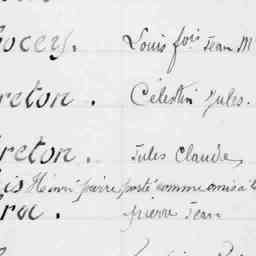 ocey. Louis fois Jean M
reton. Célestin Jules.
reton. Jules Claude
is Henri pierre porté comme omis à
roc. pierre Jean